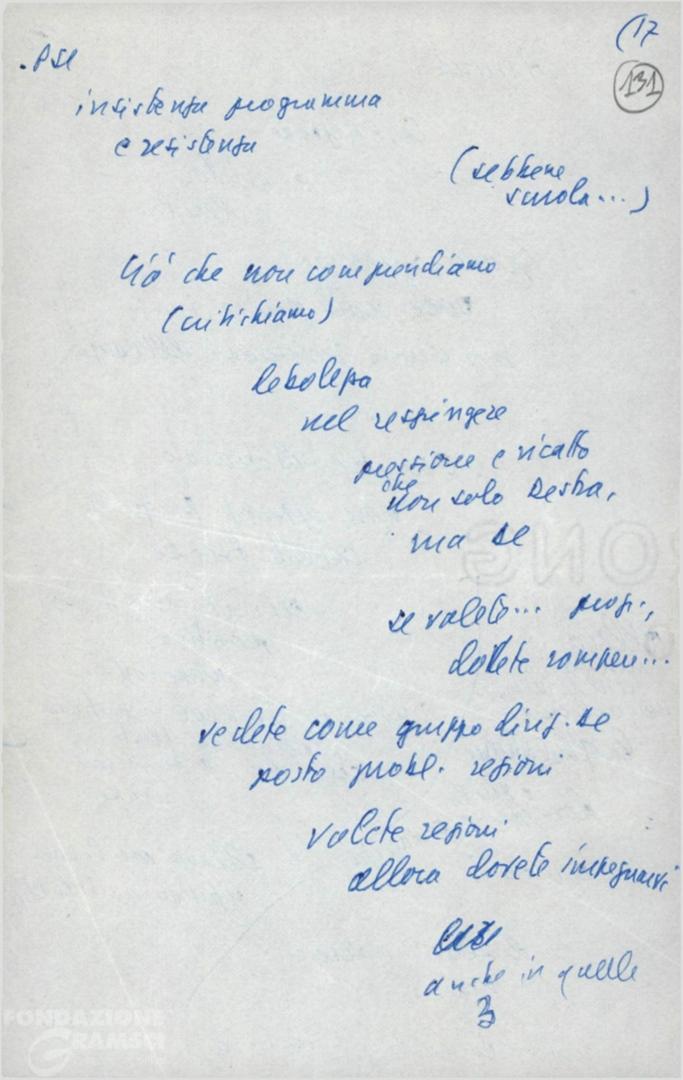 (17
131
. PSI
insistenza programma
e resistenza
(sebbene
scuola...)
Ciò che non comprendiamo
(critichiamo)
debolezza
nel respingere
pressione e ricatto
che
non solo Destra,
ma DC
se volete... progr.,
dovete rompere...
vedete come gruppo dirig. DC
posto probl. regioni
volete regioni
allora dovete impegnarvi
anche in quelle
3
FONDAZIONE
GRAMSCI